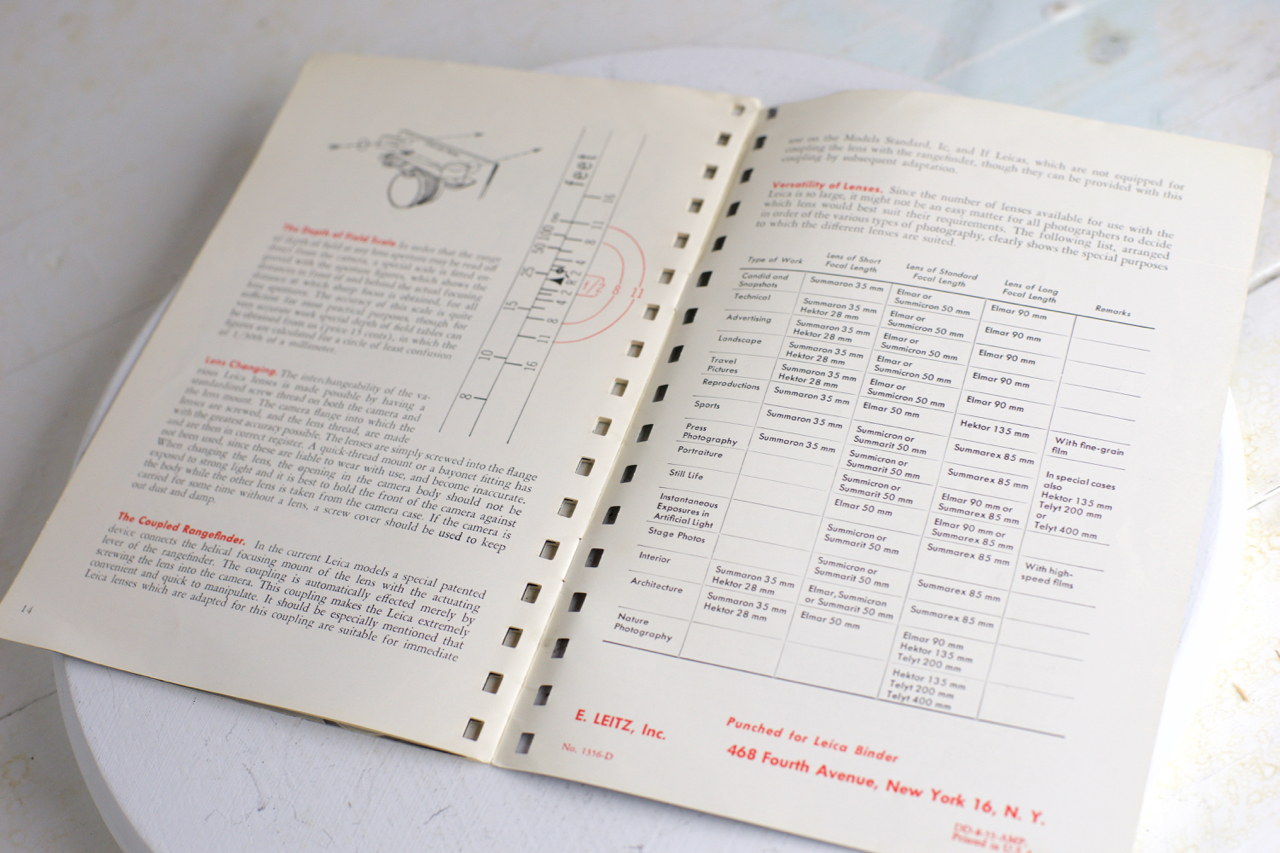 The Depth of Field Scale. In order that the range
of depth of field at any lens aperture may be read off
distances in which sharp focus is obtained, for all
lens apertures. The precision of this scale is quite
sufficient for all practical purposes, though for
be obtained from us (price 15 cents), in which the
figures are calculated for a circle of least confusion
of 1/30th of a millimeter.
Lens Changing. The interchangeability of the va-
rious Leica lenses is made possible by having a
standardized screw thread on both the camera and
the lens mount. The camera flange into which the
lenses are screwed, and the lens thread, are made
with the greatest accuracy possible. The lenses are simply screwed into the flange
and are then in correct register. A quick-thread mount or a bayonet fitting has
not been used, since these are liable to wear with use, and become inaccurate.
When changing the lens, the opening in the camera body should not be
exposed to strong light and it is best to hold the front of the camera against
the body while the other lens is taken from the camera case. If the camera is
carried for some time without a lens, a screw cover should be used to keep
out dust and damp.
The Coupled Rangefinder. In the current Leica models a special patented
device connects the helical focusing mount of the lens with the actuating
lever of the rangefinder. The coupling is automatically effected merely by
screwing the lens into the camera. This coupling makes the Leica extremely
convenient and quick to manipulate. It should be especially mentioned that
Leica lenses which are adapted for this coupling are suitable for immediate
14
use on the Models Standard, Ic, and If Leicas, which are not equipped for
coupling the lens with the rangefinder, though they can be provided with this
coupling by subsequent adaptation.
Versatility of Lenses. Since the number of lenses available for use with the
Leica is so large, it might not be an easy matter for all photographers to decide
which lens would best suit their requirements. The following list, arranged
in order of the various types of photography, clearly shows the special purposes
to which the different lenses are suited.
Type of Work Lens of Short Focal Length Lens of Standard Focal Length Lens of Long Focal Length Remarks
Candid and Snapshots Summaron 35 mm Elmar or Summicron 50 mm Elmar 90 mm
Technical Summaron 35 mm Hektor 28 mm Elmar or Summicron 50 mm Elmar 90 mm
Advertising Summaron 35 mm Hektor 28 mm Elmar or Summicron 50 mm Elmar 90 mm
Landscape Summaron 35 mm Hektor 28 mm Elmar or Summicron 50 mm Elmar 90 mm
Travel Pictures Summaron 35 mm Hektor 28 mm Elmar or Summicron 50 mm Elmar 90 mm
Reproductions Summaron 35 mm Elmar 50 mm Hektor 135 mm With fine-grain film
Sports Summaron 35 mm Summicron or Summarit 50 mm Summarex 85 mm In special cases also Hektor 135 mm Telyt 200 mm or Telyt 400 mm
Press Photography Summaron 35 mm Summicron or Summarit 50 mm Summarex 85 mm
Portraiture Summicron or Summarit 50 mm Elmar 90 mm or Summarex 85 mm
Still Life Elmar 50 mm Elmar 90 mm or Summarex 85 mm
Instantaneous Exposures in Artificial Light Summicron or Summarit 50 mm Summarex 85 mm With high-speed films
Stage Photos Summicron or Summarit 50 mm Summarex 85 mm
Interior Summaron 35 mm Hektor 28 mm Elmar, Summicron or Summarit 50 mm Summarex 85 mm
Architecture Summaron 35 mm Hektor 28 mm Elmar 50 mm Elmar 90 mm Hektor 135 mm Telyt 200 mm
Nature Photography Hektor 135 mm Telyt 200 mm Telyt 400 mm
E. LEITZ, Inc.
No. 1356-D
Punched for Leica Binder
468 Fourth Avenue, New York 16, N. Y.
Printed in U.S.A.